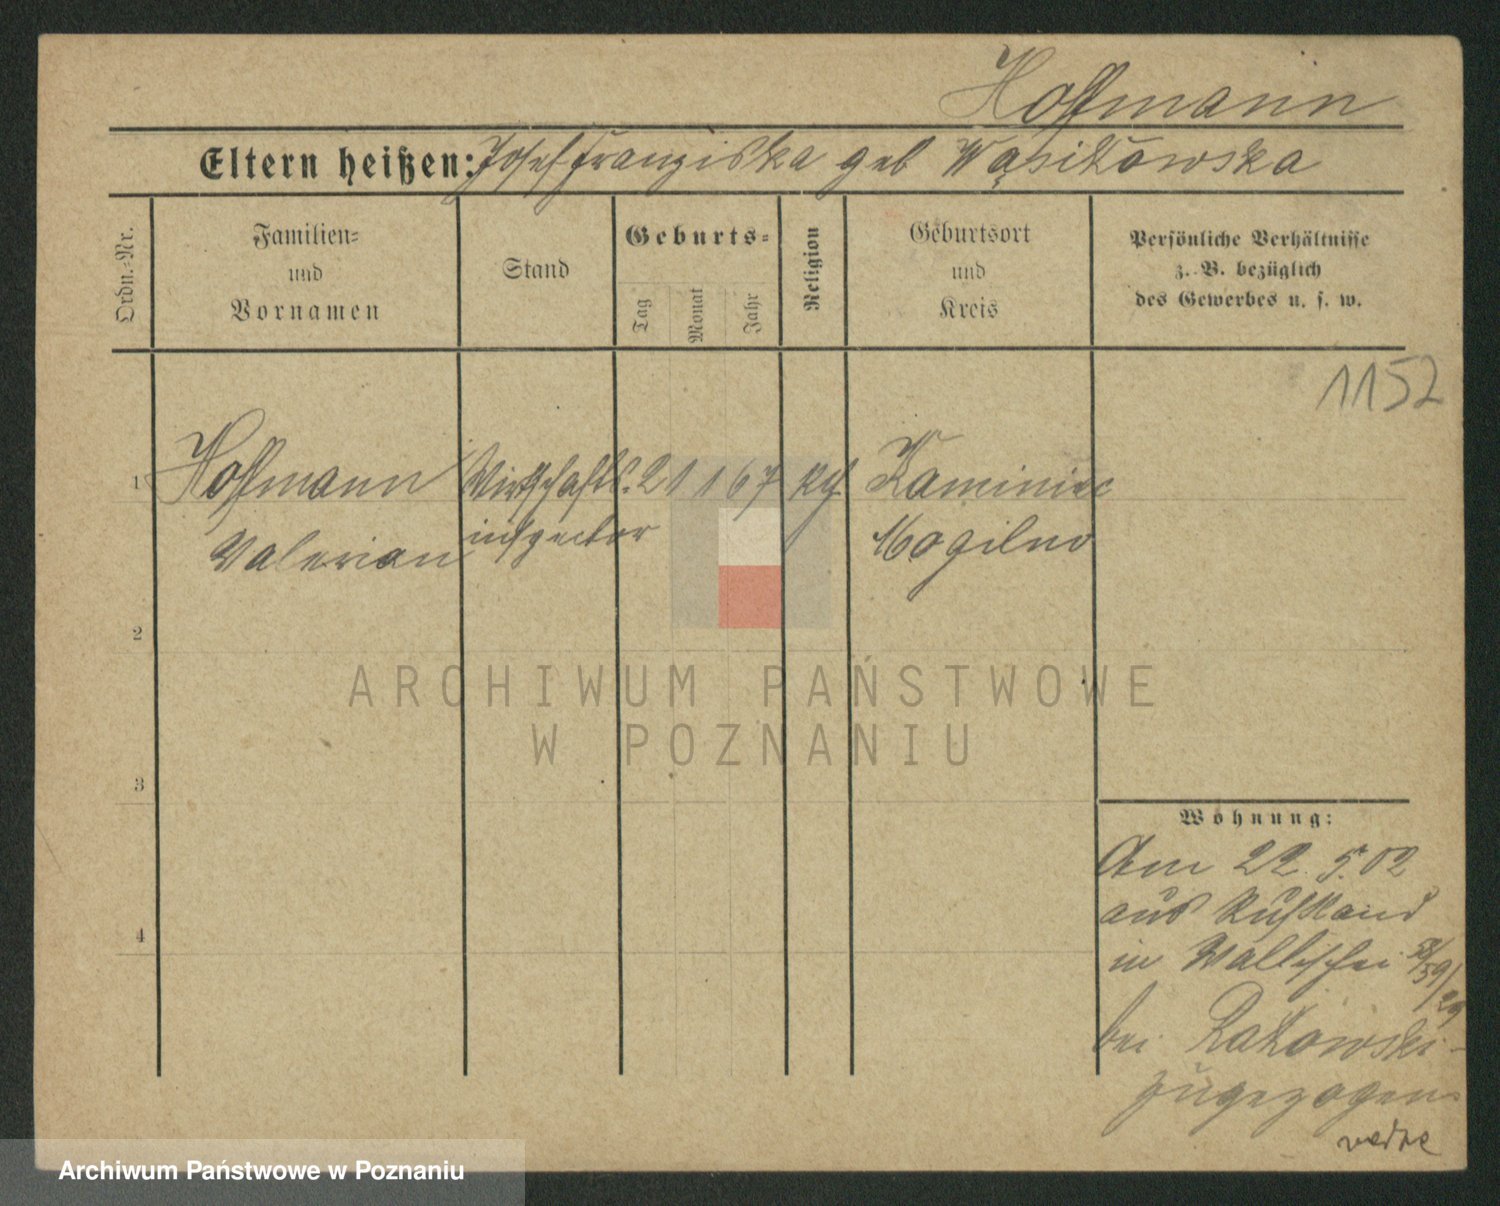 Hoffmann
Eltern heißen: Josef Franziska geb Wąsikowska
Ordn.-Nr.
Familien-
und
Vornamen
Stand
Geburts-
Tag
Monat
Jahr
Religion
Geburtsort
und
Kreis
Persönliche Verhältnisse
z. B. bezüglich
des Gewerbes u. s. w.
1152
1 Hoffmann Wirtschafts. 21 1 67 kth Kaminiec
Valerian inspector Mogilno
2
3
4
ARCHIWUM PAŃSTWOWE
W POZNANIU
Wohnung:
Am 22. 5. 02
aus Rußland
in Wallischei 58/59/29
bei Rakowski
zugezogen
Archiwum Państwowe w Poznaniu